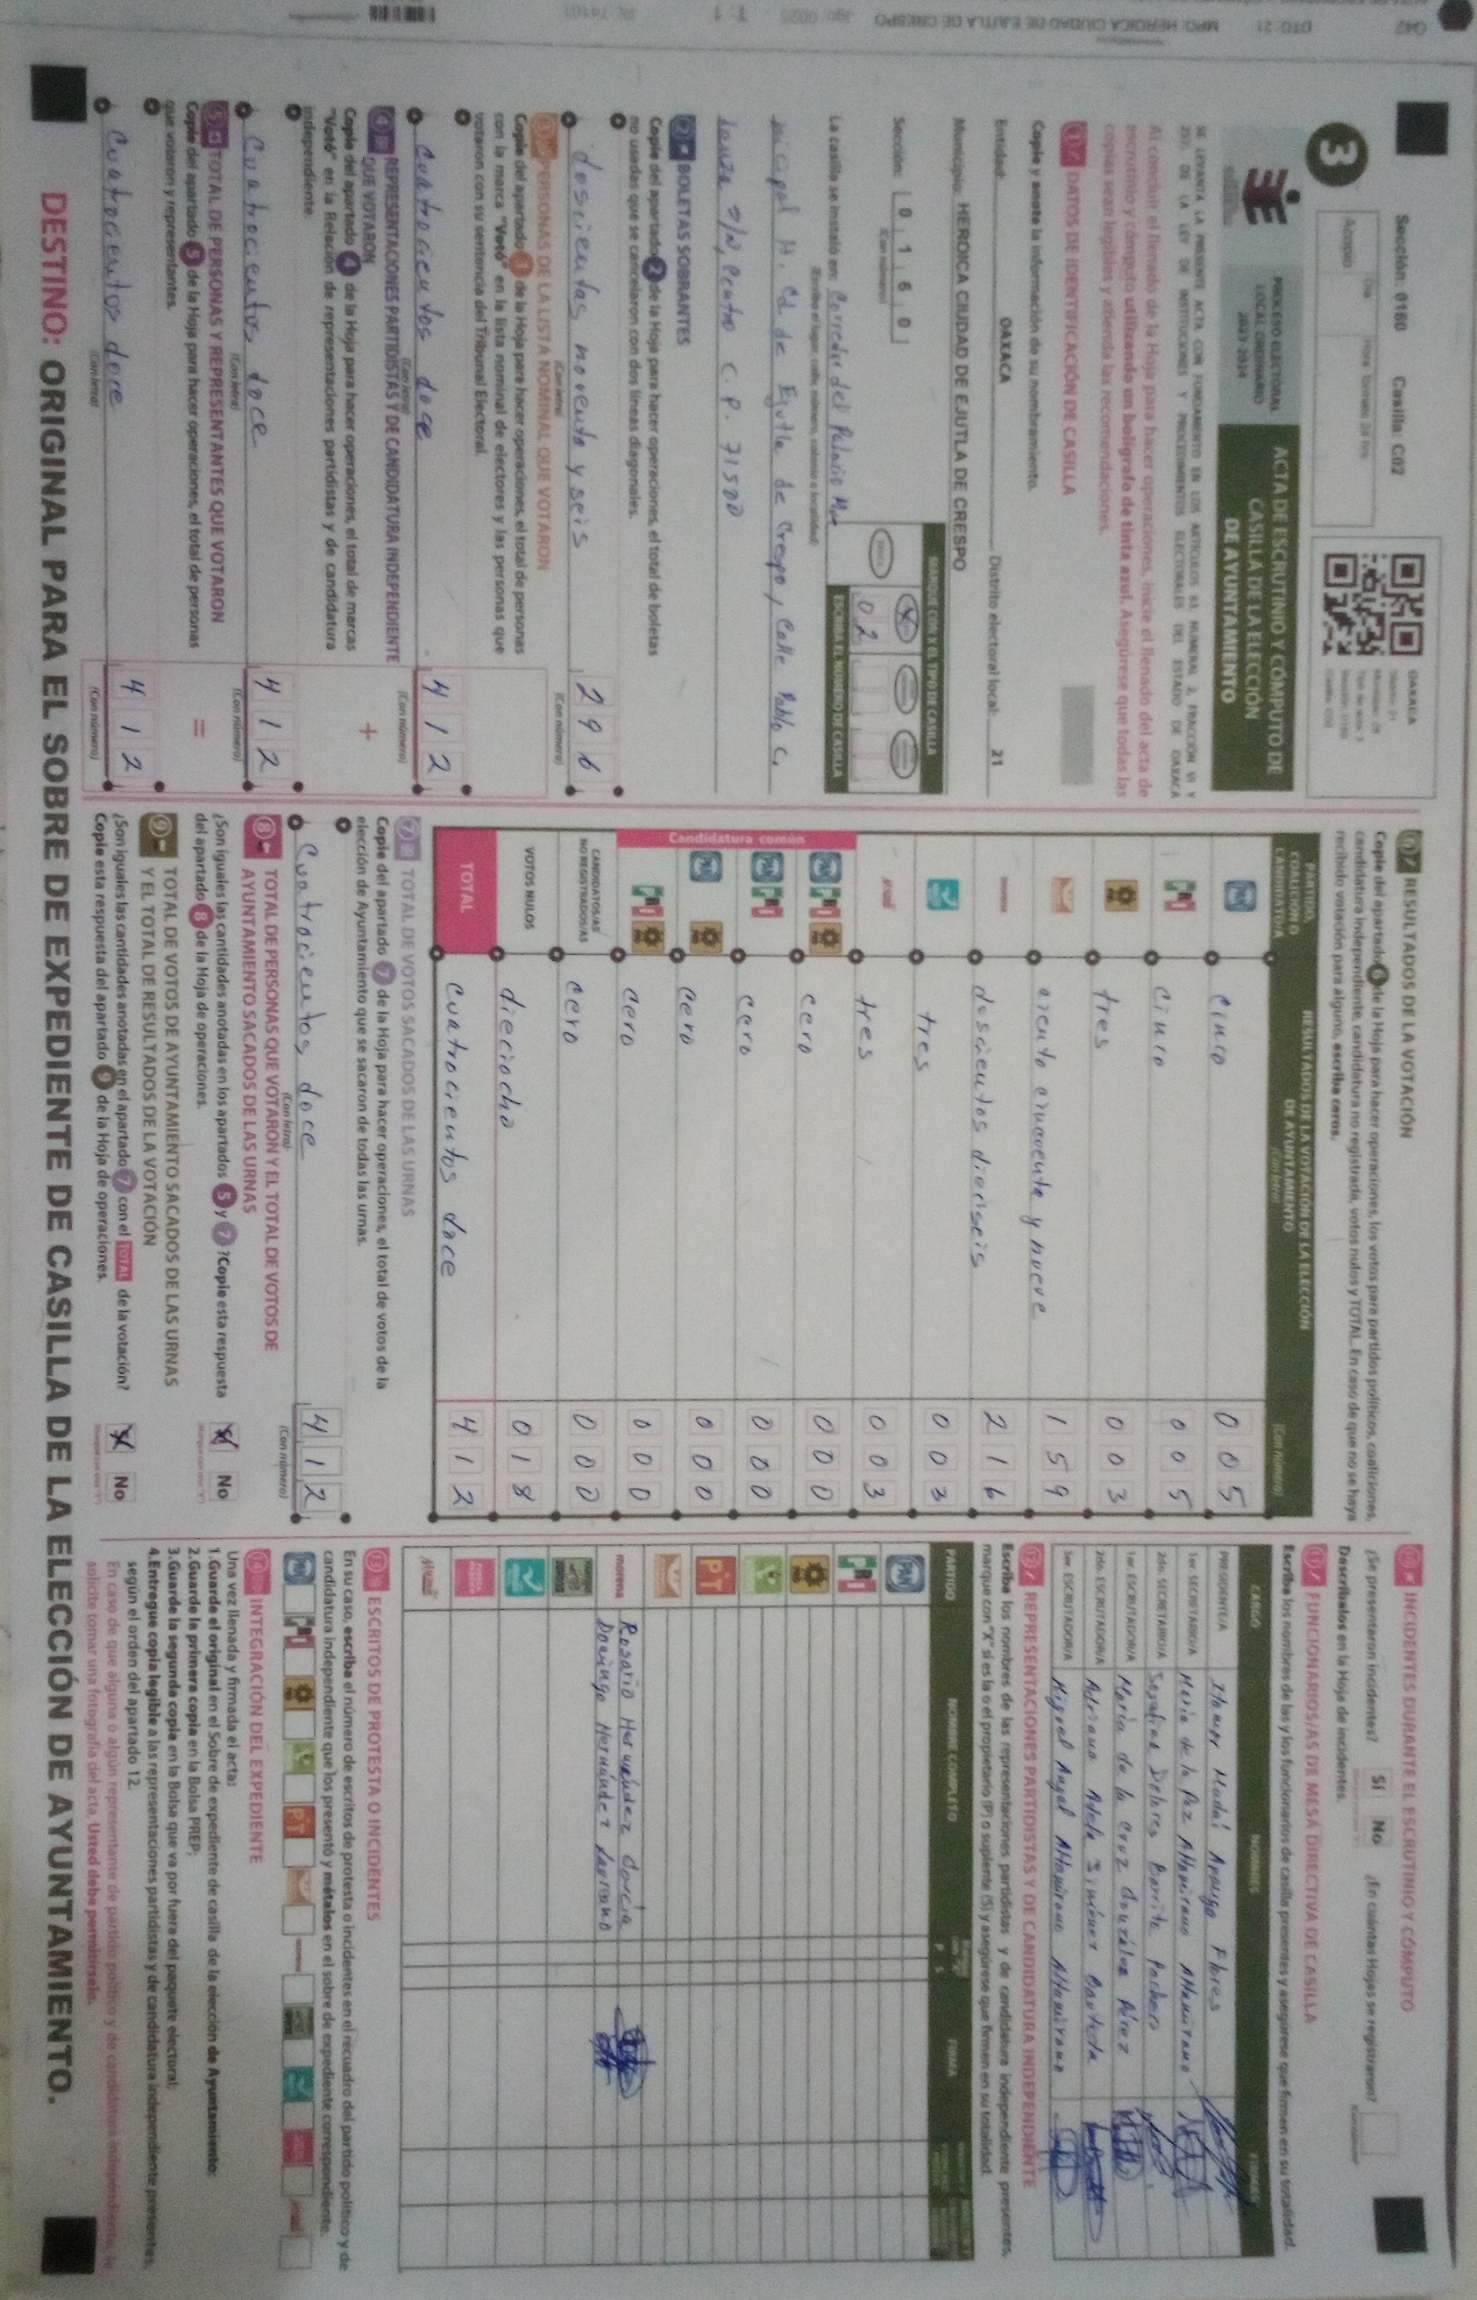 Sección: 0160 Casilla: C02
Acopio Día Hora formato 24 hrs
OAXACA
3
PROCESO ELECTORAL
LOCAL ORDINARIO
2023-2024
ACTA DE ESCRUTINIO Y CÓMPUTO DE
CASILLA DE LA ELECCIÓN
DE AYUNTAMIENTO
SE LEVANTA LA PRESENTE ACTA CON FUNDAMENTO EN LOS ARTÍCULOS 63 NUMERAL 2, FRACCIÓN VI Y
DE LA LEY DE INSTITUCIONES Y PROCEDIMIENTOS ELECTORALES DEL ESTADO DE OAXACA
Al concluir el llenado de la Hoja para hacer operaciones, inicie el llenado del acta de
escrutinio y cómputo utilizando un bolígrafo de tinta azul. Asegúrese que todas las
copias sean legibles y atienda las recomendaciones.
1 DATOS DE IDENTIFICACIÓN DE CASILLA
Copie y anote la información de su nombramiento.
Entidad: OAXACA Distrito electoral local: 21
Municipio: HEROICA CIUDAD DE EJUTLA DE CRESPO
Sección: 0 1 6 0
(Con número)
MARQUE CON X EL TIPO DE CASILLA
ESCRIBA EL NÚMERO DE CASILLA
02
La casilla se instaló en: Corredor del Palacio Mun
(Escriba el lugar, calle, número, colonia o localidad)
icipal H. Cd de Ejutla de Crespo, Calle Pablo C.
Lanza S/N, Centro C.P. 71500
2 BOLETAS SOBRANTES
Copie del apartado 2 de la Hoja para hacer operaciones, el total de boletas
no usadas que se cancelaron con dos líneas diagonales.
doscientas noventa y seis 2 9 6
(Con letra) (Con número)
3 PERSONAS DE LA LISTA NOMINAL QUE VOTARON
Copie del apartado 3 de la Hoja para hacer operaciones, el total de personas
con la marca "Votó" en la lista nominal de electores y las personas que
votaron con su sentencia del Tribunal Electoral.
cuatrocientos doce 4 1 2
(Con letra) (Con número)
4 REPRESENTACIONES PARTIDISTAS Y DE CANDIDATURA INDEPENDIENTE
QUE VOTARON
Copie del apartado 4 de la Hoja para hacer operaciones, el total de marcas
"Votó" en la Relación de representaciones partidistas y de candidatura
independiente.
+
cuatrocientos doce 4 1 2
(Con letra) (Con número)
5 TOTAL DE PERSONAS Y REPRESENTANTES QUE VOTARON
Copie del apartado 5 de la Hoja para hacer operaciones, el total de personas
que votaron y representantes.
=
cuatrocientos doce 4 1 2
(Con letra) (Con número)
6 RESULTADOS DE LA VOTACIÓN
Copie del apartado 6 de la Hoja para hacer operaciones, los votos para partidos políticos, coaliciones,
candidatura independiente, candidatura no registrada, votos nulos y TOTAL. En caso de que no se haya
recibido votación para alguno, escriba ceros.
PARTIDO,
COALICIÓN O
CANDIDATO/A
RESULTADOS DE LA VOTACIÓN DE LA ELECCIÓN
DE AYUNTAMIENTO
(Con letra) (Con número)
PAN cinco 0 0 5
PRI cinco 0 0 5
PRD tres 0 0 3
ciento cincuenta y nueve 1 5 9
morena doscientos dieciseis 2 1 6
tres 0 0 3
tres 0 0 3
Candidatura común
PAN PRI PRD cero 0 0 0
PAN PRI cero 0 0 0
PAN PRD cero 0 0 0
PRI PRD cero 0 0 0
CANDIDATOS/AS
NO REGISTRADOS/AS cero 0 0 0
VOTOS NULOS dieciocho 0 1 8
TOTAL cuatrocientos doce 4 1 2
7 TOTAL DE VOTOS SACADOS DE LAS URNAS
Copie del apartado 7 de la Hoja para hacer operaciones, el total de votos de la
elección de Ayuntamiento que se sacaron de todas las urnas.
cuatrocientos doce 4 1 2
(Con letra) (Con número)
8 TOTAL DE PERSONAS QUE VOTARON Y EL TOTAL DE VOTOS DE
AYUNTAMIENTO SACADOS DE LAS URNAS
¿Son iguales las cantidades anotadas en los apartados 5 y 7? Copie esta respuesta
del apartado 8 de la Hoja de operaciones.
X No
9 TOTAL DE VOTOS DE AYUNTAMIENTO SACADOS DE LAS URNAS
Y EL TOTAL DE RESULTADOS DE LA VOTACIÓN
¿Son iguales las cantidades anotadas en el apartado 7 con el TOTAL de la votación?
Copie esta respuesta del apartado 9 de la Hoja de operaciones.
X No
10 INCIDENTES DURANTE EL ESCRUTINIO Y CÓMPUTO
¿Se presentaron incidentes? Sí No ¿En cuántas Hojas se registraron?
Descríbalos en la Hoja de incidentes.
11 FUNCIONARIOS/AS DE MESA DIRECTIVA DE CASILLA
Escriba los nombres de las y los funcionarios de casilla presentes y asegúrese que firmen en su totalidad.
CARGO NOMBRES FIRMAS
PRESIDENTE/A Itamar Hadai Flores
1er. SECRETARIO/A María de la Paz Altamirano Altamirano
2do. SECRETARIO/A Serafina Dolores Barrita Pacheco
1er. ESCRUTADOR/A María de la Cruz González Pérez
2do. ESCRUTADOR/A Adriana Adela Jiménez Bautista
3er. ESCRUTADOR/A Miguel Angel Altamirano Altamirano
12 REPRESENTACIONES PARTIDISTAS Y DE CANDIDATURA INDEPENDIENTE
Escriba los nombres de las representaciones partidistas y de candidatura independiente presentes,
marque con "X" si es la o el propietario (P) o suplente (S) y asegúrese que firmen en su totalidad.
PARTIDO NOMBRE COMPLETO P S FIRMA
PAN
PRI
PRD
PT
morena Rosario Hernández García
Domingo Hernández
13 ESCRITOS DE PROTESTA O INCIDENTES
En su caso, escriba el número de escritos de protesta o incidentes en el recuadro del partido político y de
candidatura independiente que los presentó y métalos en el sobre de expediente correspondiente.
14 INTEGRACIÓN DEL EXPEDIENTE
Una vez llenada y firmada el acta:
1.Guarde el original en el Sobre de expediente de casilla de la elección de Ayuntamiento;
2.Guarde la primera copia en la Bolsa PREP;
3.Guarde la segunda copia en la Bolsa que va por fuera del paquete electoral;
4.Entregue copia legible a las representaciones partidistas y de candidatura independiente presentes,
según el orden del apartado 12.
En caso de que alguna o algún representante de partido político y de candidatura independiente, le
solicite tomar una fotografía del acta, Usted debe permitírselo.
DESTINO: ORIGINAL PARA EL SOBRE DE EXPEDIENTE DE CASILLA DE LA ELECCIÓN DE AYUNTAMIENTO.